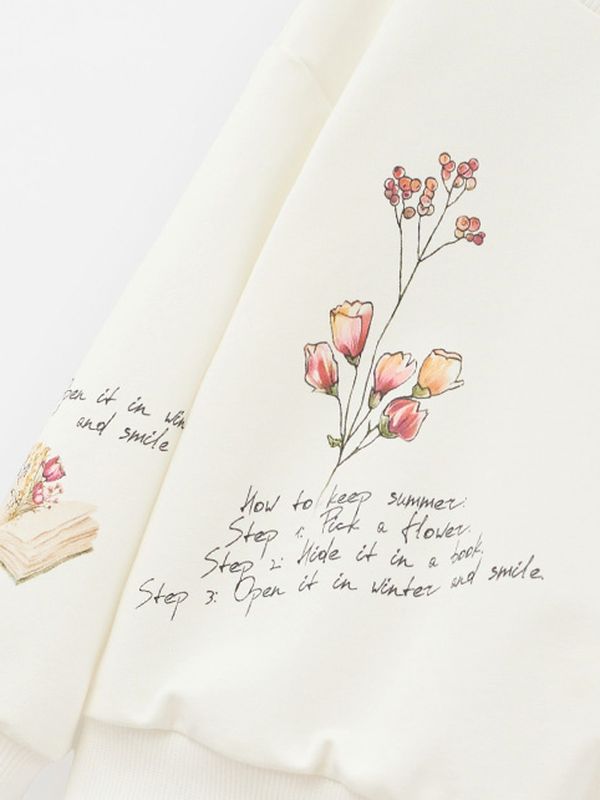 How to keep summer:
Step 1: Pick a flower.
Step 2: Hide it in a book.
Step 3: Open it in winter and smile.
it in
and smile